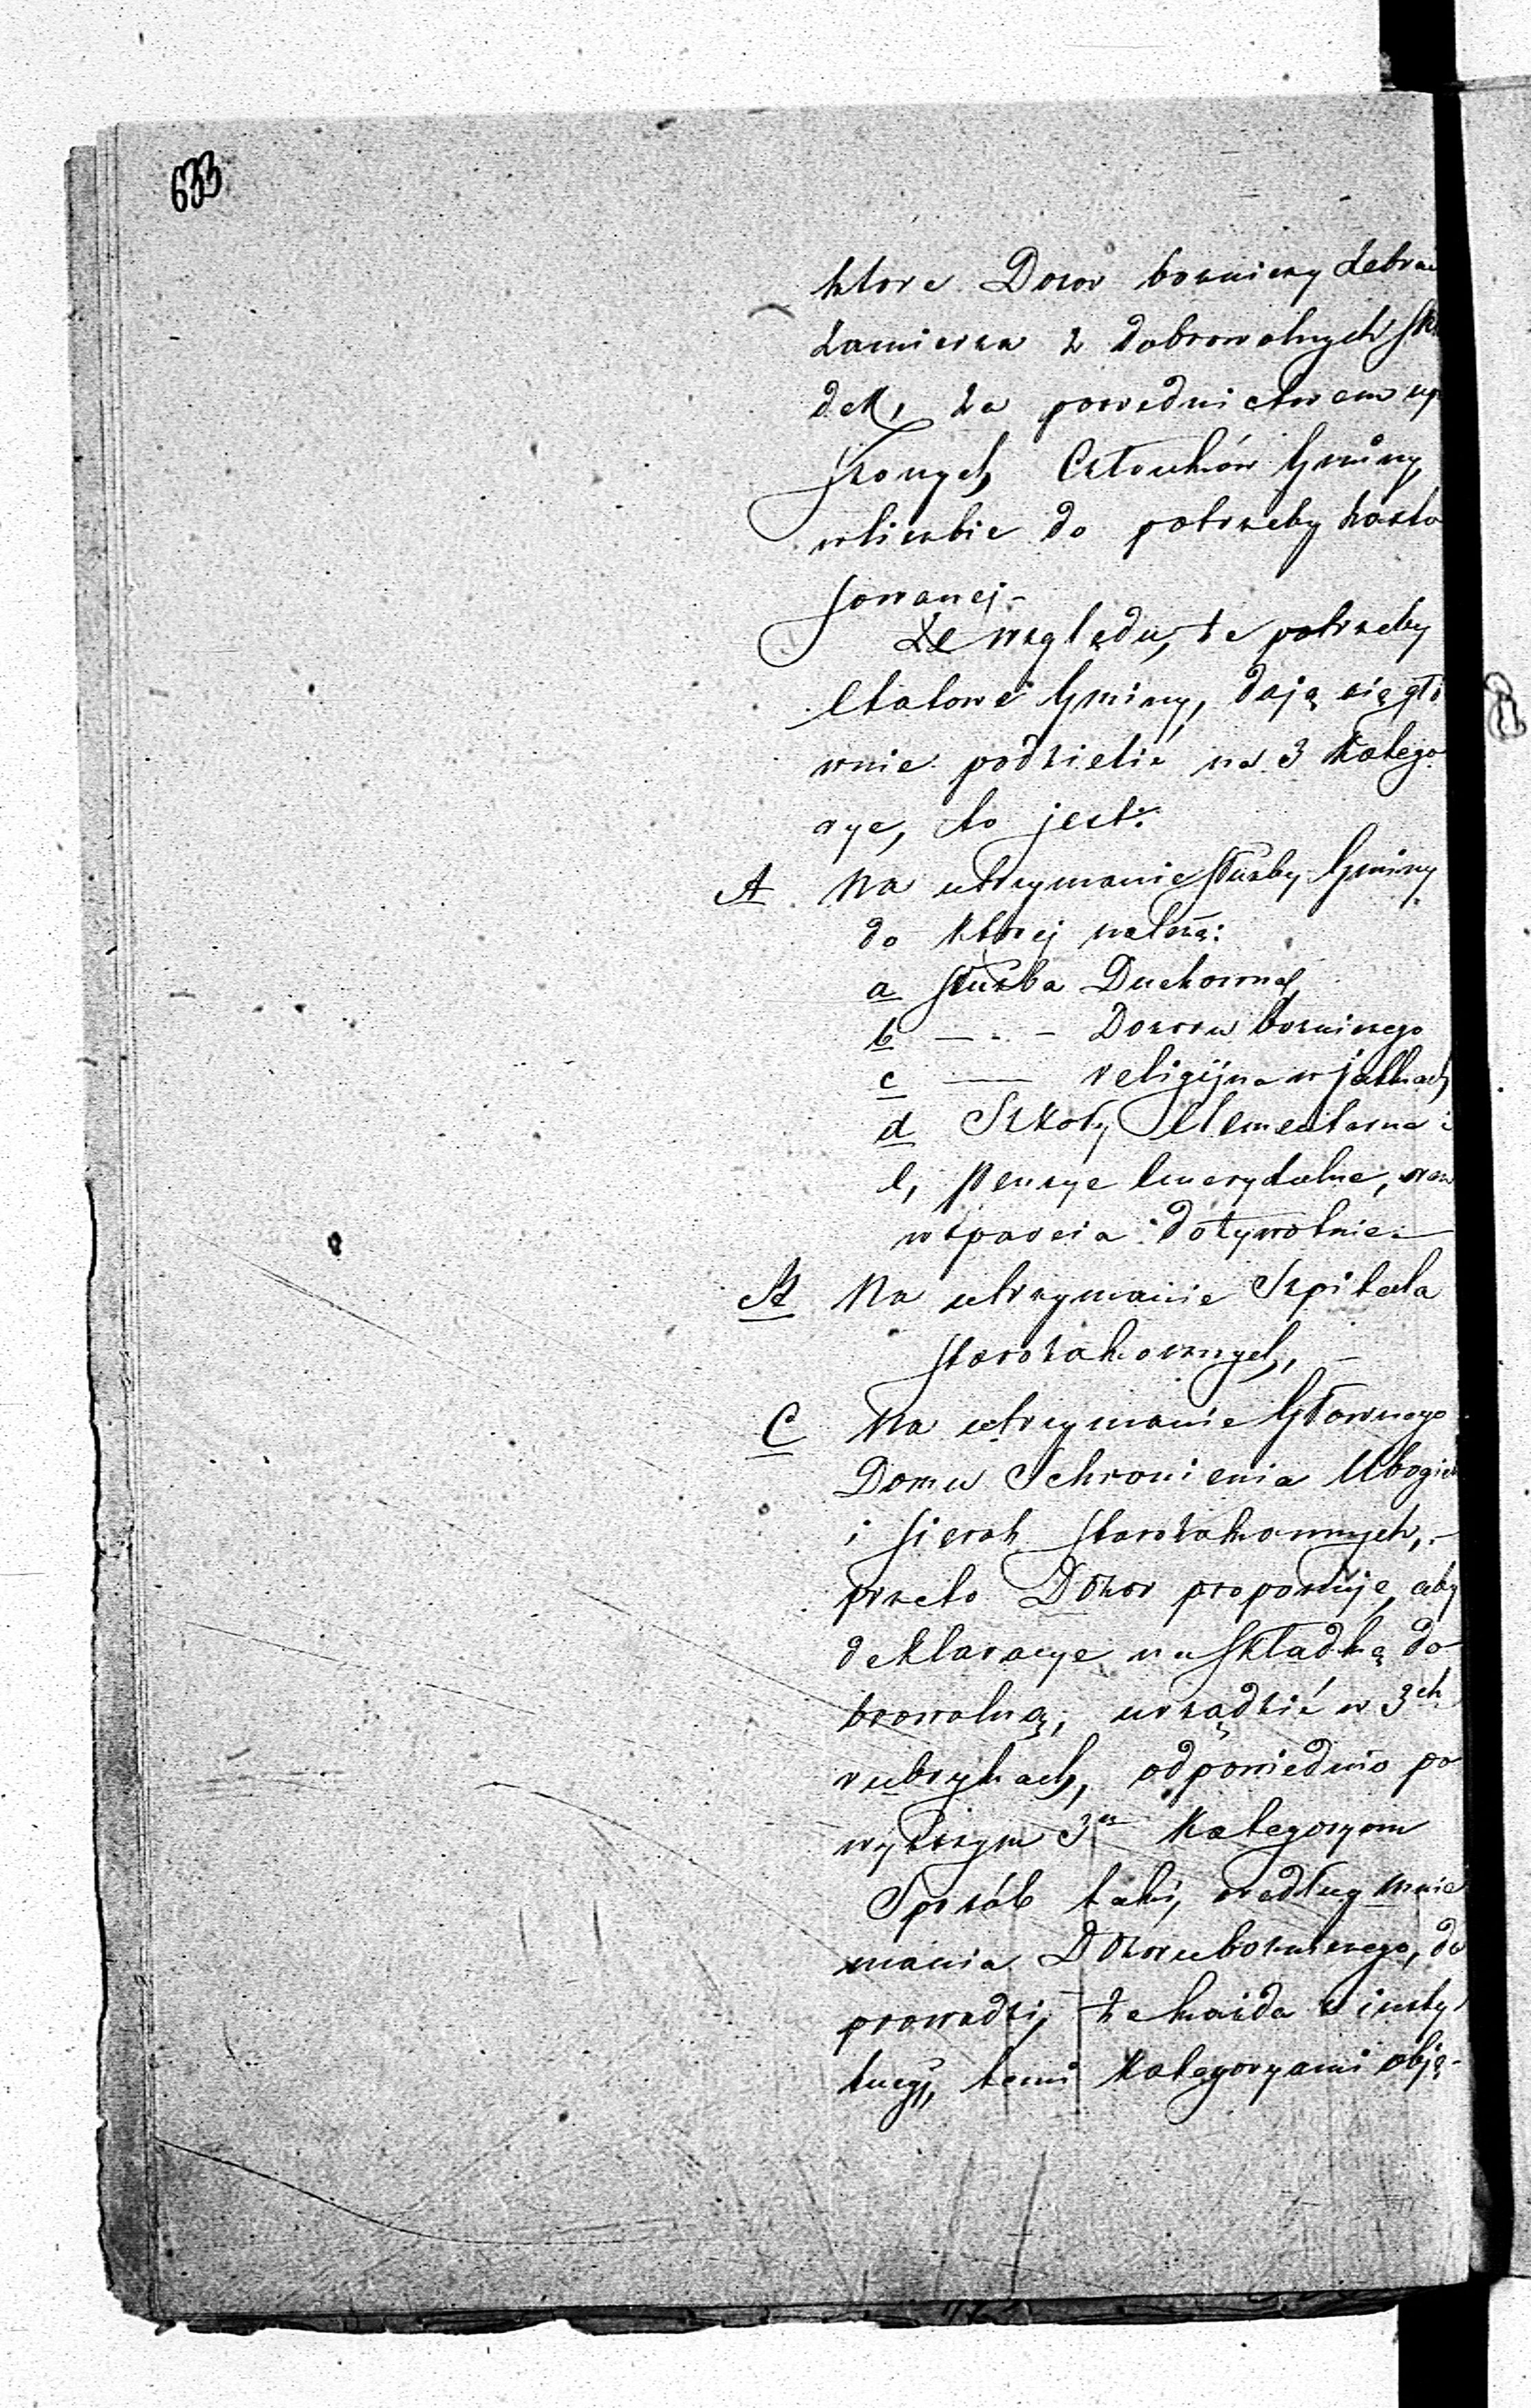 633
które Dozor bozniczy zebrać
zamierza z dobrowolnych skł
dek, za posrednictwem up
szonych Członków Gminy,
wliczbie do potrzeby zasto
sowanej -
Ze względu, że potrzeby
Etatowe Gminy, dają się głó
wnie podzielić na 3 Katego
rye, to jest:
A Na utrzymanie służby Gminy
do ktorej należą:
a służba Duchowna,
b — " — Dozoru bozniczego
c — religijna w jatkach
d Szkoły Elementarne i
e, pensye Emerytalne, oraz
wsparcia dożywotnie. —
B Na utrzymanie Szpitala
starozakonnych, —
C Na utrzymanie Głownego
Domu Schronienia Ubogich
i sierot starozakonnych, —
przeto Dozor proponuje, aby
deklaracye na składkę do
browolną, urządzić w 3ch
rubrykach, odpowiednio po
wyższym 3m Kategoryom
Sposób taki, według mnie
mania Dozoru bozniczego, do
prowadzi, że każda z insty
tucyj, temi Kategoryami obję-